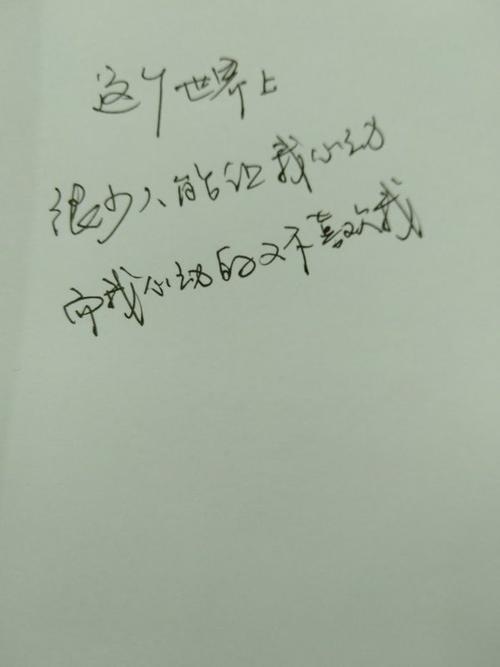 这个世界上
很少人能让我心动
而我心动的又不喜欢我